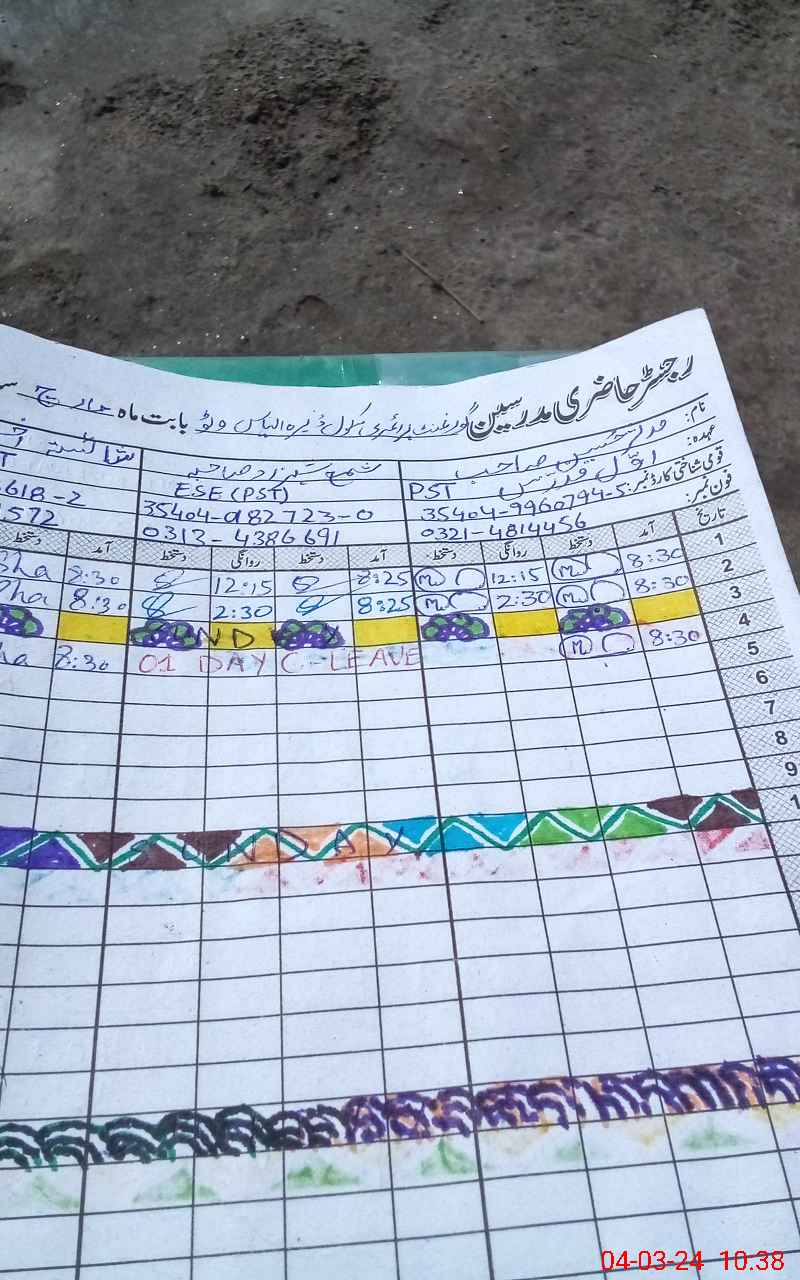 رجسٹر حاضری مدرسین گورنمنٹ پرائمری سکول ڈیرہ الیاس وٹو بابت ماہ مارچ
نام: مدثر حسین صاحب شمع شہزاد صاحبہ شائستہ
عہدہ: اوّل مدرس PST ESE (PST) T
قومی شناختی کارڈ نمبر: 35404-9960794-5 35404-0182723-0 618-2
فون نمبر: 0321-4814456 0313-4386691 1572
تاریخ آمد دستخط روانگی دستخط آمد دستخط روانگی دستخط آمد دستخط
1 8:30 12:15 8:25 12:15 8:30 Sha
2 8:30 2:30 8:25 2:30 8:30 Sha
3 SUNDAY
4 8:30 01 DAY C-LEAVE 8:30 ha
5
6
7
8
9
1 SUNDAY
04-03-24 10.38